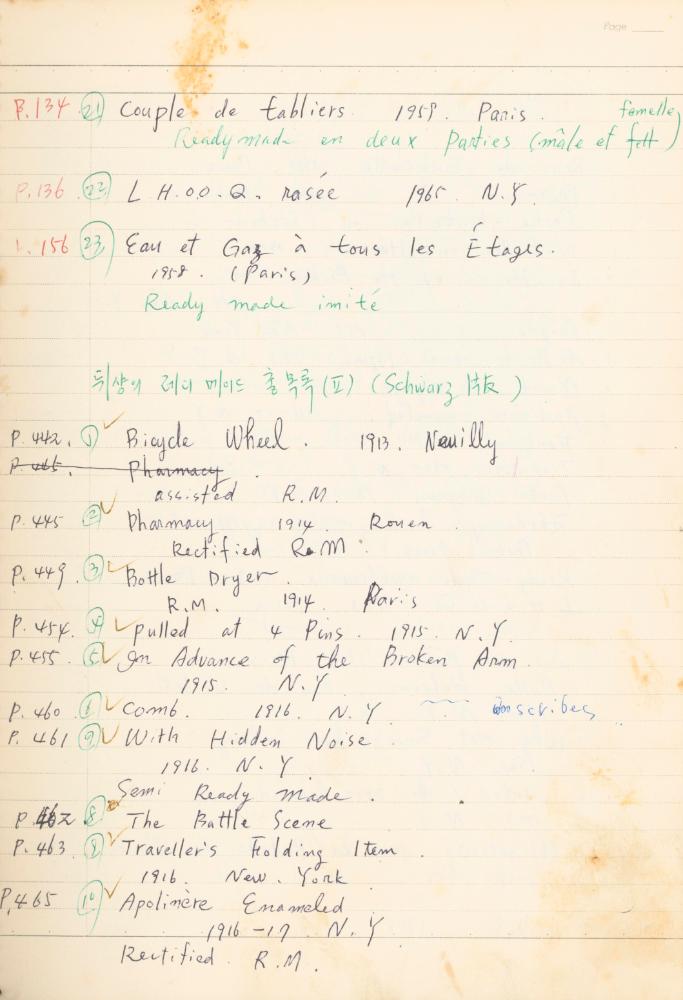 Page
P.134 ㉑ Couple de tabliers. 1959. Paris. femelle
Readymade en deux parties (mâle et )
P.136 ㉒ L.H.O.O.Q. rasée 1965. N.Y.
P.156 ㉓ Eau et Gaz à tous les Étages.
1958. (Paris)
Ready made imité
뒤샹의 레디 메이드 총목록(II) (Schwarz 片版)
P.442. ① Bicycle Wheel. 1913. Neuilly
P.445. Pharmacy.
assisted R.M.
P.445 ② Pharmacy 1914. Rouen.
Rectified R.M.
P.449. ③ Bottle Dryer.
R.M. 1914. Paris
P.454. ④ pulled at 4 Pins. 1915. N.Y.
P.455. ⑤ In Advance of the Broken Arm.
1915. N.Y
P.460 ⑥ Comb. 1916. N.Y inscribes
P.461 ⑦ With Hidden Noise
1916. N.Y
Semi Ready made.
P.462 ⑧ The Battle Scene
P.463 ⑨ Traveller's Folding Item.
1916. New. York
P.465 ⑩ Apolinère Enameled
1916-17. N.Y
Rectified. R.M.